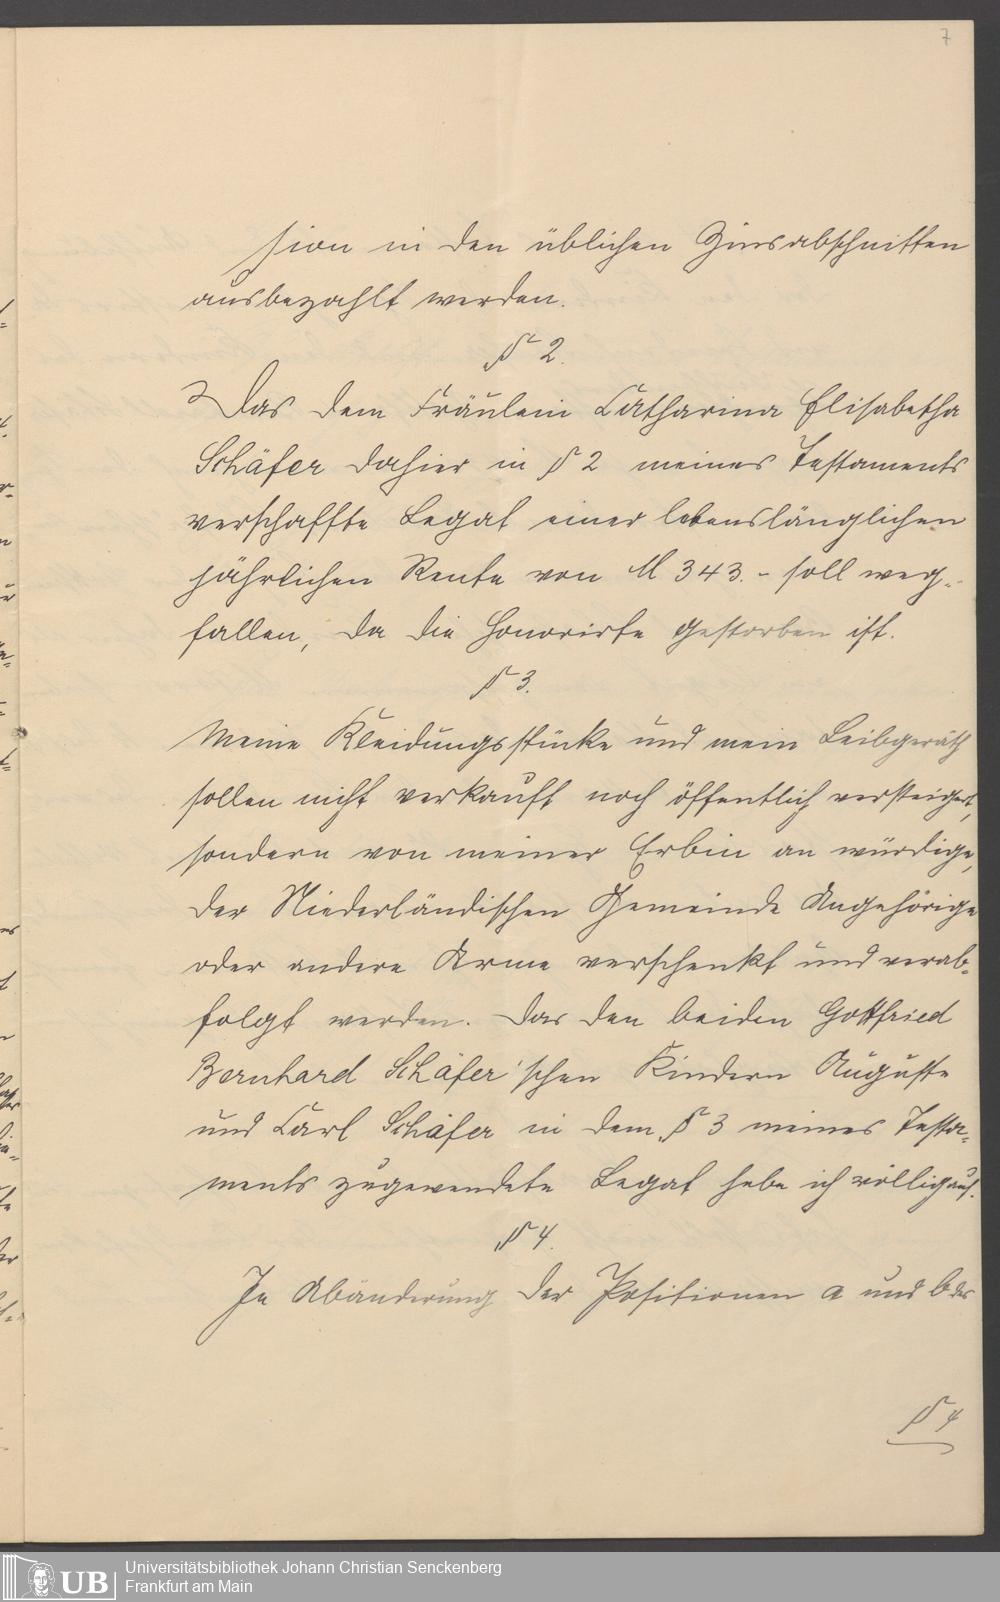 7
sion in den üblichen Zinsabschnitten
ausbezahlt werden.
§ 2.
Das dem Fräulein Catharina Elisabetha
Schäfer dahier in § 2 meines Testaments
verschaffte Legat einer lebenslänglichen
jährlichen Rente von M 343.- soll weg-
fallen, da die Honorirte gestorben ist.
§ 3.
Meine Kleidungsstücke und mein Leibgeräth
sollen nicht verkauft noch öffentlich versteigert,
sondern von meiner Erbin an würdige,
der Niederländischen Gemeinde Angehörige
oder andere Arme verschenkt und verab-
folgt werden. Das den beiden Gottfried
Bernhard Schäfer'schen Kindern Auguste
und Carl Schäfer in dem § 3 meines Testa-
ments zugewendete Legat hebe ich völlig auf.
§ 4.
In Abänderung der Positionen a und b des
§ 4
UB
Universitätsbibliothek Johann Christian Senckenberg
Frankfurt am Main